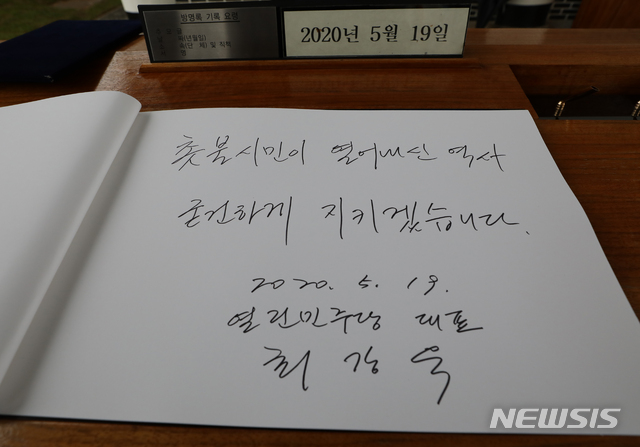 임명록 기록 요령
2020년 5월 19일
촛불시민이 열어내신 역사
굳건하게 지키겠습니다.
2020. 5. 19.
열린민주당 대표
최강욱
NEWSIS